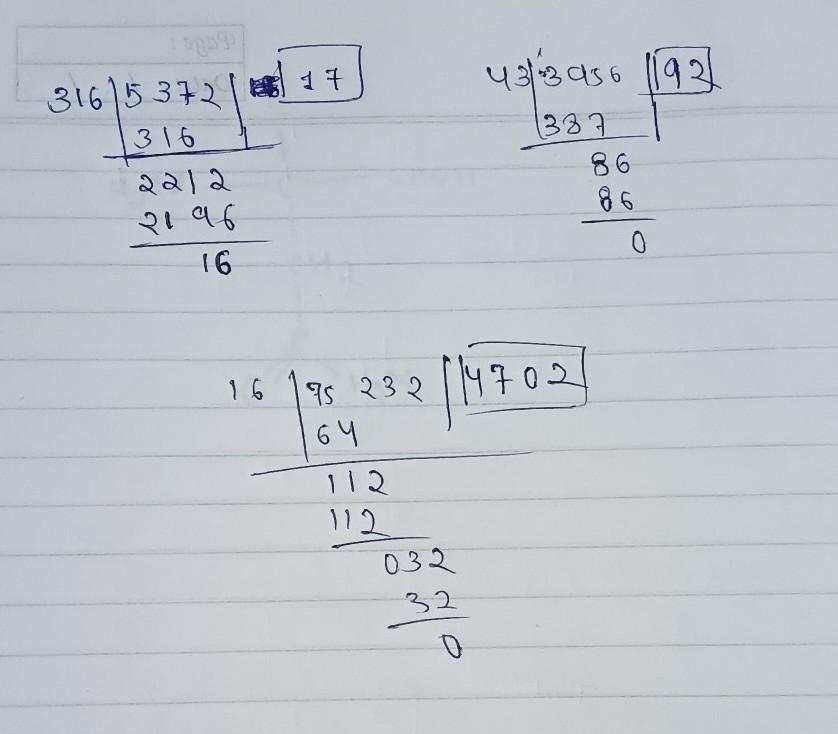 316 5372 17
316
2212
2196
16
43 3956 92
387
86
86
0
16 75 232 4702
64
112
112
032
32
0